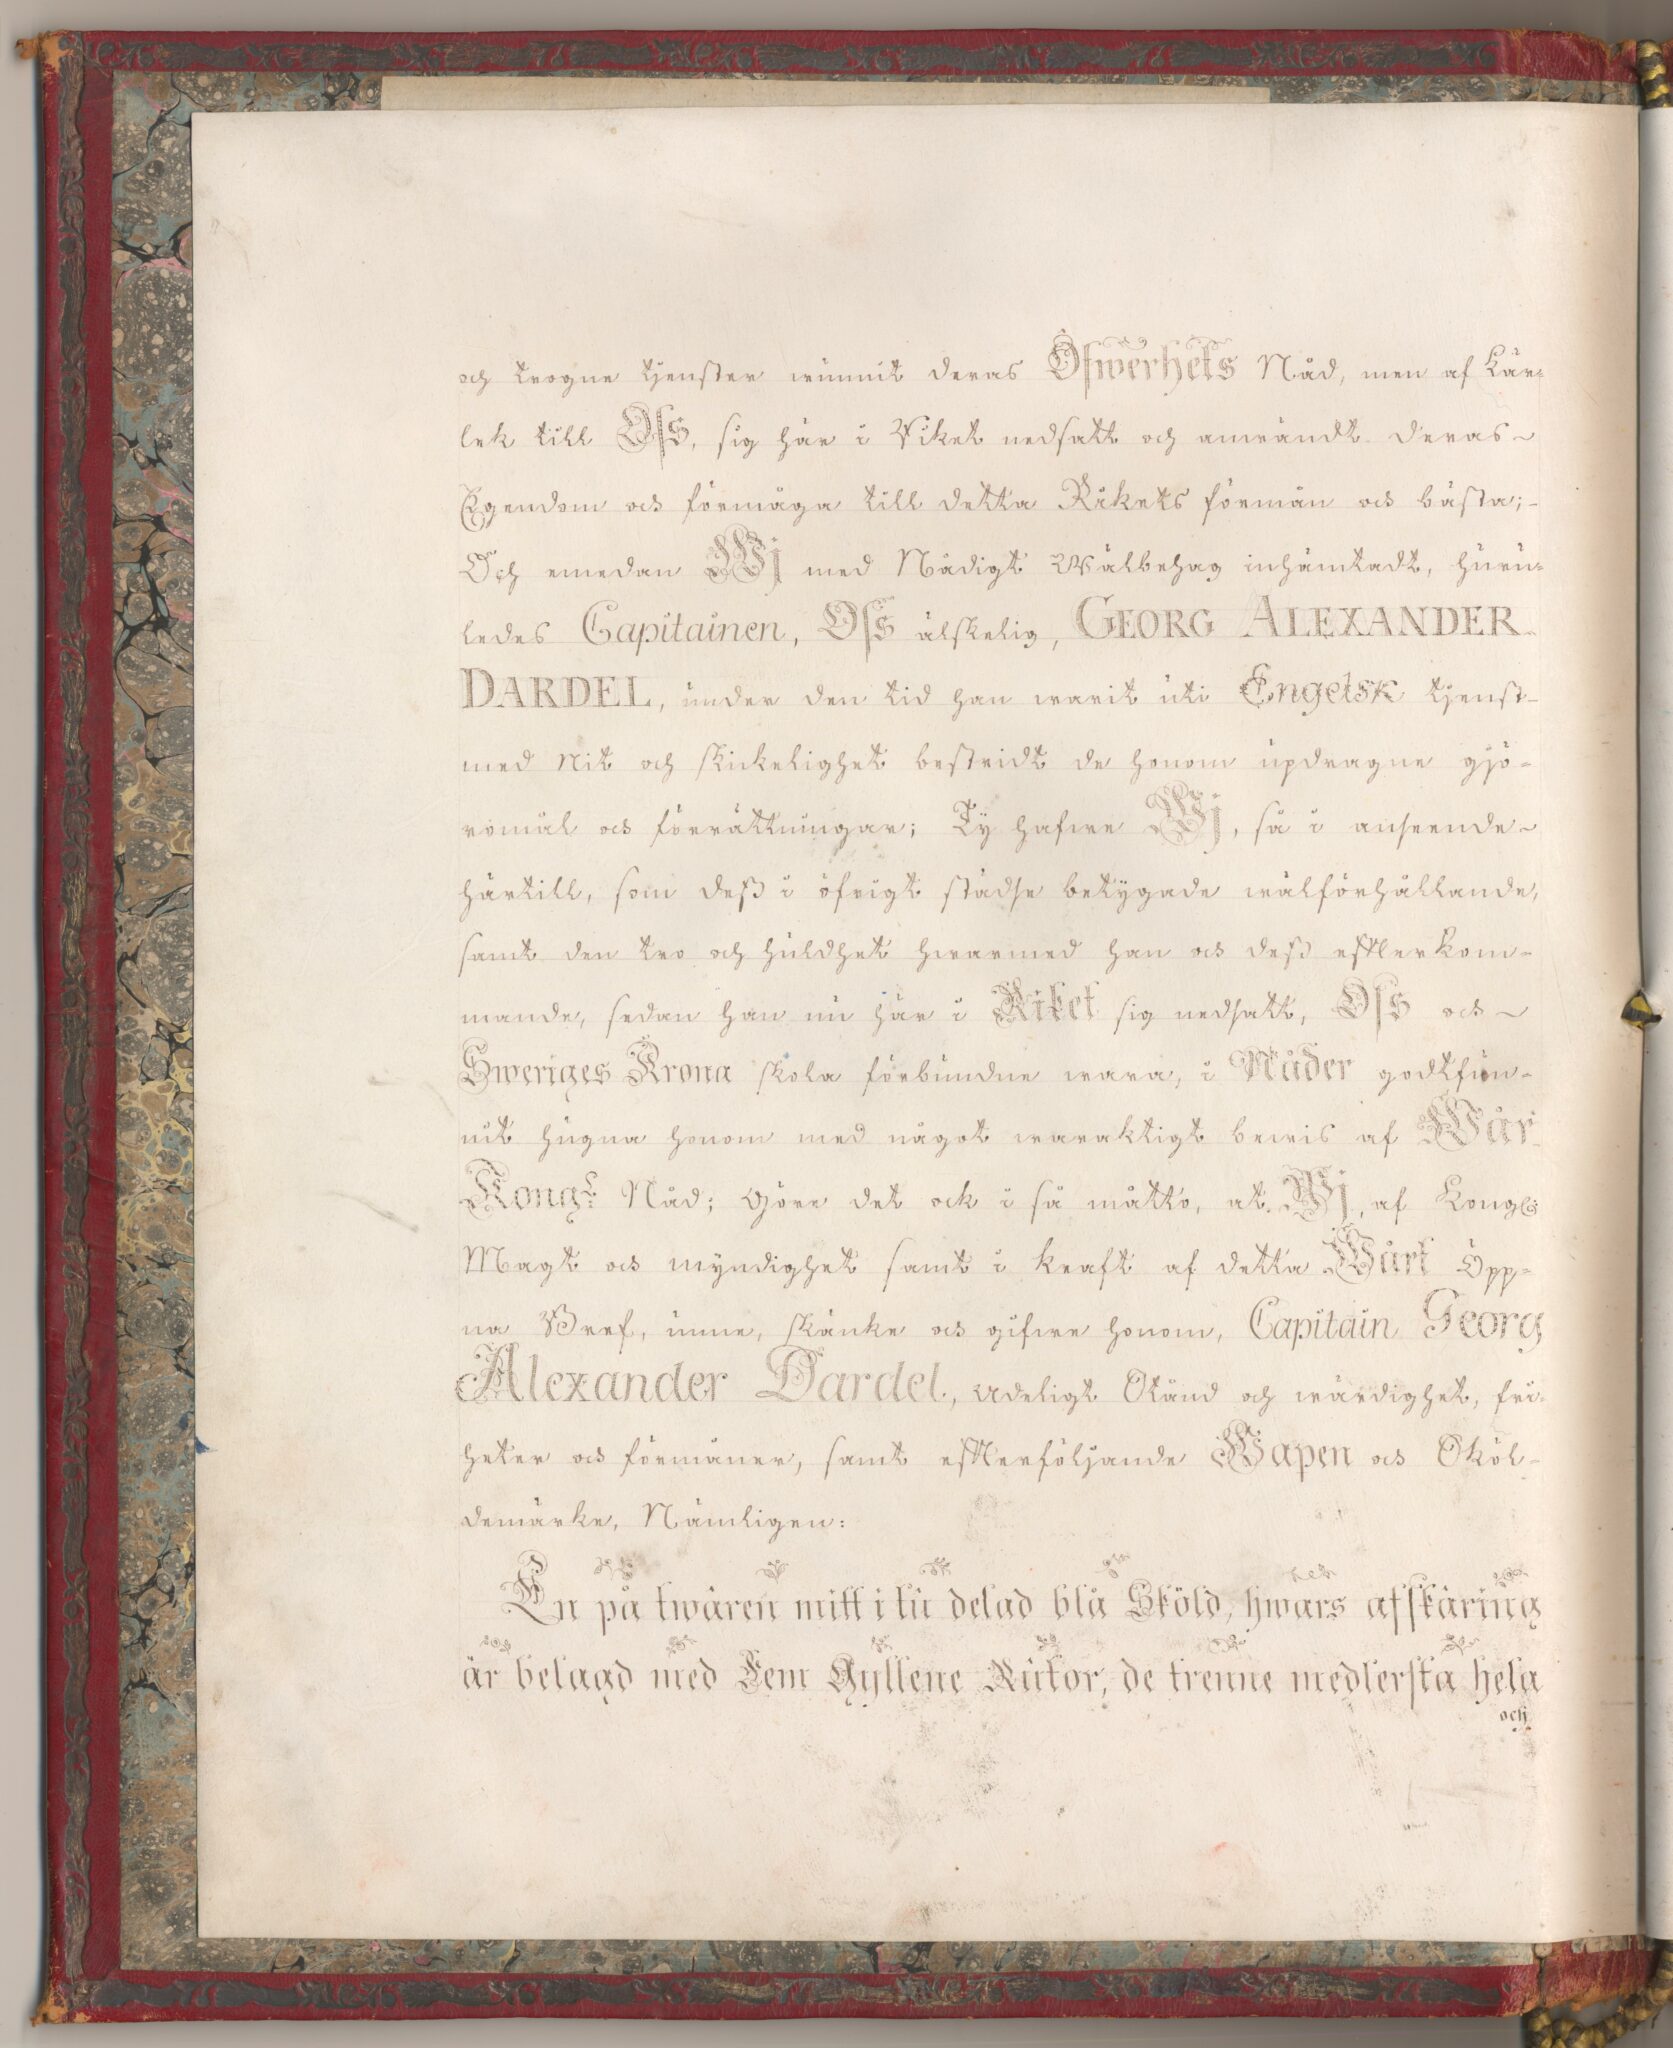 och trogne tjenster wunnit deras Öfwerhets Nåd, men af Kär-
lek till Oſs, sig här i Riket nedsatt och anwändt deras
Egendom och förmåga till detta Rikets förmån och bästa;
Och emedan Wj med Nådigt Wälbehag inhämtadt, huru-
ledes Capitainen, Oſs älskelig, GEORG ALEXANDER
DARDEL, under den tid han warit uti Engelsk tjenst
med Nit och skickelighet bestridt de honom updragne gjö-
romål och förrättningar; Ty hafwe Wj, så i anseende
härtill, som deß i öfrigt städse betygade wälförhållande,
samt den tro och huldhet hwarmed han och deß efterkom-
mande, sedan han nu här i Riket sig nedsatt, Oſs och
Sweriges Krona skola förbundne wara, i Nåder godtfun-
nit hugna honom med något waraktigt bewis af Wår
Kongl. Nåd; Göre det ock i så måtto, at Wj, af Kongl:
Magt och myndighet samt i kraft af detta Wårt Öpp-
na Bref, unne, skänke och gifwe honom, Capitain Georg
Alexander Dardel, Adeligt Stånd och wärdighet, fri-
heter och förmåner, samt efterföljande Wapen och Sköl-
demärke, Nämligen:
En på twären mitt i tü delad blå Sköld, hwars afskäring
är belagd med Fem Gyllene Rütor, de trenne medlersta hela
och